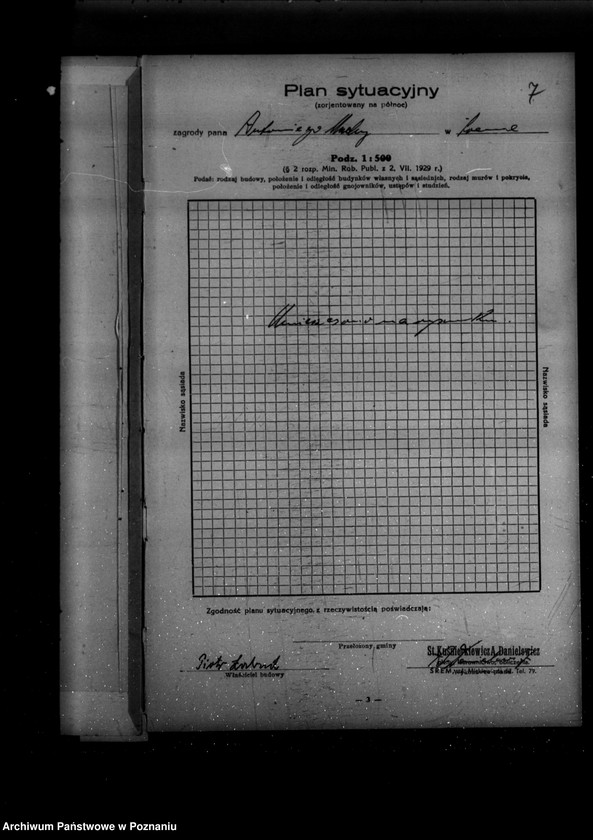 7
Plan sytuacyjny
(zorjentowany na północ)
zagrody pana Antoniego w
Podz. 1:500
(§ 2 rozp. Min. Rob. Publ. z 2, VII. 1929 r.)
Podać: rodzaj budowy, położenie i odległość budynków własnych i sąsiednich, rodzaj murów i pokrycia,
położenie i odległość gnojowników, ustępów i studzien.
Umieszczono na rysunku.
Nazwisko sąsiada
Nazwisko sąsiada
Zgodność planu sytuacyjnego z rzeczywistością poświadczają:
Przełożony gminy
St. Kuśnierkiewicz A. Danielewicz
Piotr
Właściciel budowy
ŚREM, Tel. 79.
— 3 —
Archiwum Państwowe w Poznaniu